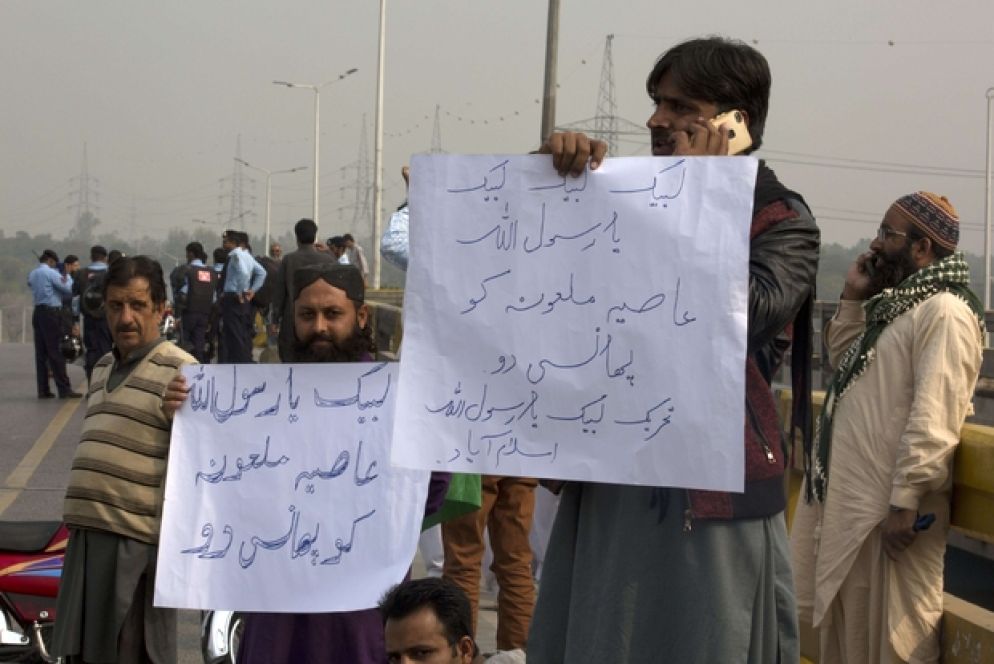 لبیک لبیک لبیک
یا رسول اللہ
عاصیہ ملعونہ کو
پھانسی دو
تحریک لبیک یا رسول اللہ
اسلام آباد
لبیک یا رسول اللہ
عاصیہ ملعونہ
کو پھانسی دو